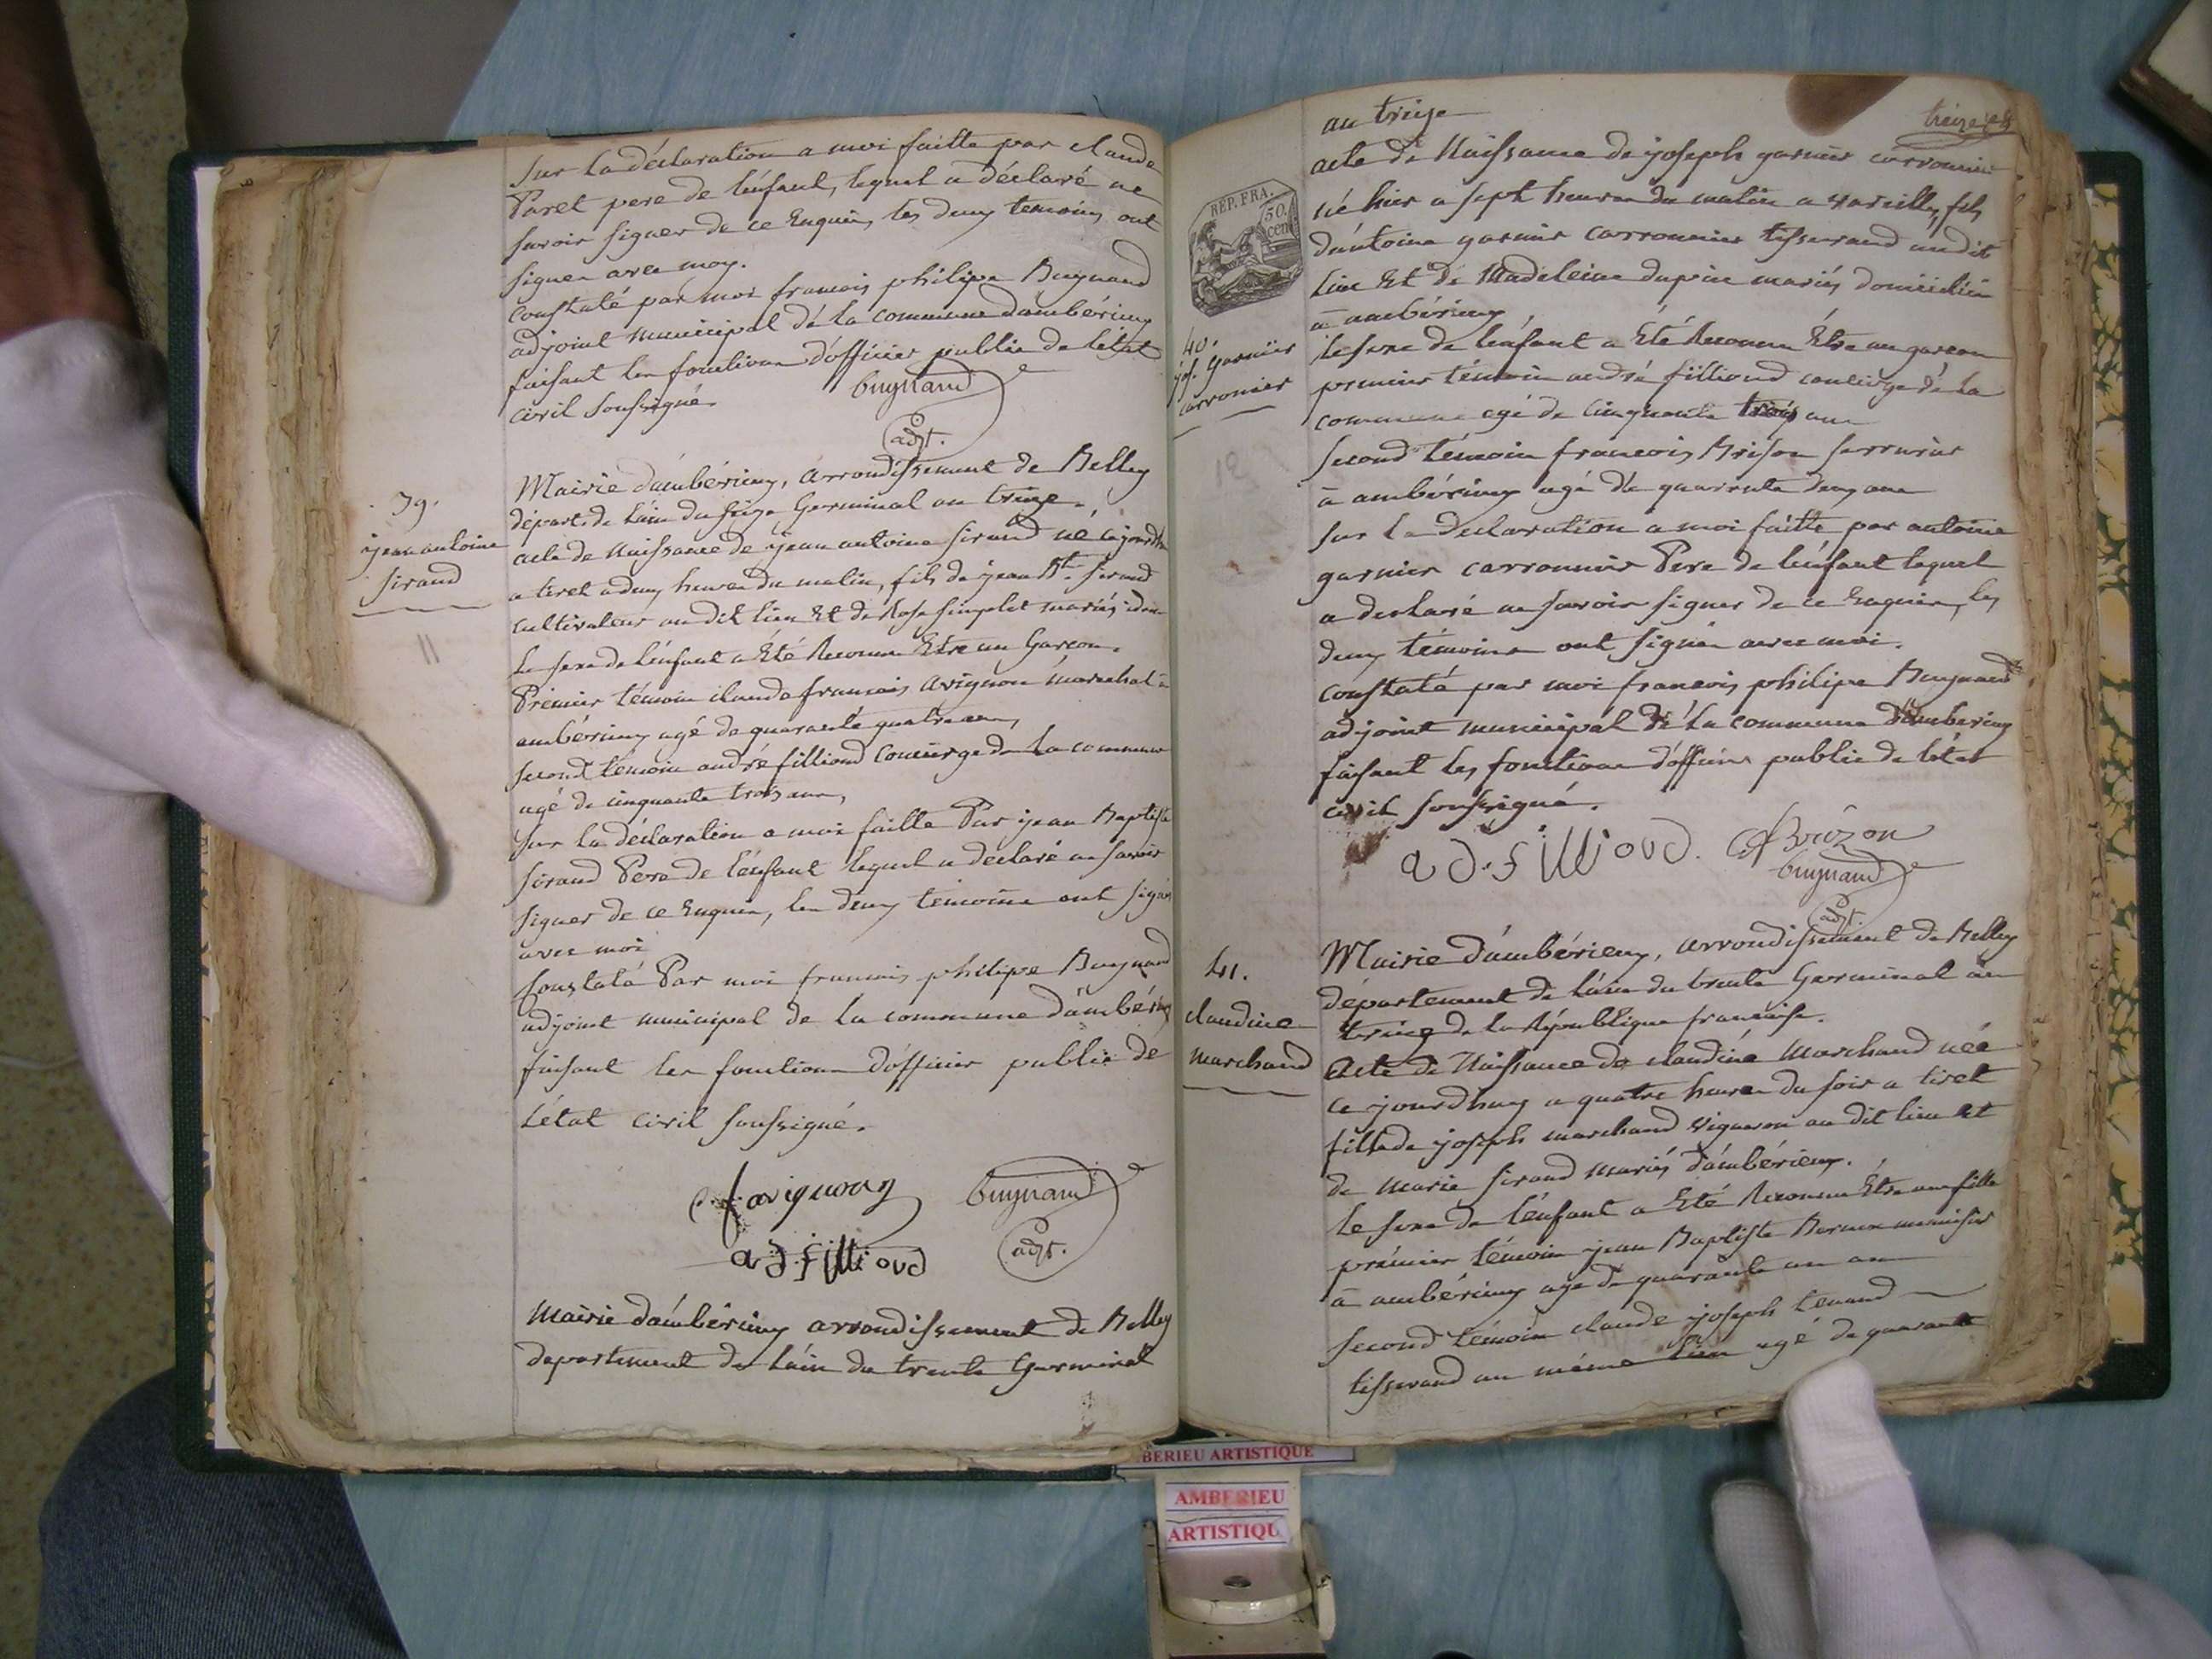 sur la déclaration a moi faitte par claude
Paret pere de lénfant, lequel a déclaré ne
savoir signer de ce Enquis, les deux temoins ont
signer avec moy.
constaté par moi francois philipe Bugnand
adjoint municipal dé la commune dámbérieux
faisant les fonctions d'officier public de létat
civil soussigné.
bugnand
adjt.
39.
jean antoine
sirand
11
Mairie dámbérieux, arrondissement de Belley
départ. de láin du seize Germinal an treize.
acte de Naissance de jean antoine sirand né cejourdh
a tiret a deux heures du matin, fils de jean Bte. sirand
cultivateur au dit lieu et de Rose simplet mariés idem
le sexe de lénfant a Eté Reconnu Etre un Garcon.
Prémier témoin claude francois avignon maréchal à
ambérieux agé de quarante quatre ans,
second temoin andré filliond concierge de la commune
agé de cinquante trois ans,
sur la déclaration a moi faitte Par jean Baptiste
sirand Pere de lénfant lequel a declaré ne savoir
signer de ce Enquis, les deux temoins ont signés
avec moi
constaté Par moi francois philipe Bugnand
adjoint municipal de la commune dámbérieux
faisant les fonctions dófficier public de
létat civil soussigné.
c. f avignon bugnand
ad. fillioud adjt.
Mairie dámbérieux arrondissement de Belley
departement de láin du trente Germinal
an treize
treize
REP. FRA.
50.
cent
40.
jos. Garnier
carronier
12
acte dé Naissance de joseph garnier carronnier
né hier a sept heures du matin a vareilles, fils
dántoine garnier carronnier tisserand au dit
lieu Et dé Madeleine dupin mariés domiciliés
à ambérieux
le sexe de lénfant a Eté Reconnu Être un garcon
premier témoin andré filliond concierge dé la
commune agé de cinquante trois ans
second témoin francois Brison serrurier
à ambérieux agé dé quarante deux ans
sur la declaration a moi faitte par antoine
garnier carronnier Pere de lénfant lequel
a declaré ne savoir signer de ce Enquis, les
deux témoins ont signés avec moi.
constaté par moi francois philipe Bugnand
adjoint municipal dé la commune dámbérieux
faisant les fonctions dófficier public de létat
civil soussigné.
ad. filliovd. f Brizon
bugnand
adjt.
41.
claudine
marchand
Mairie dámbérieux, arrondissement de Belley
département de láin du trente Germinal an
treize de la République francaise.
Acte de Naissance de claudine Marchand née
ce jourdhuy a quatre heures du soir a tiret
fille de joseph marchand vigneron au dit lieu et
de marie sirand mariés dámbérieux.
le sexe de lénfant a Eté Reconnu Être une fille
prémier témoin jean Baptiste menuisier
à ambérieux agé de quarante un ans
second témoin claude joseph tenand
tisserand au même lieu agé de quarante
BERIEU ARTISTIQUE
AMBERIEU
ARTISTIQU